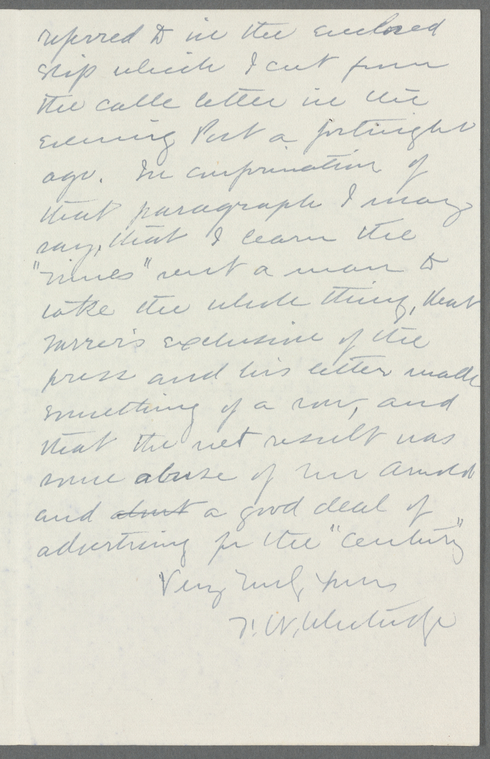 referred to in the enclosed
slip which I cut from
the cable letter in the
Evening Post a fortnight
ago. In confirmation of
that paragraph I may
say, that I learn the
"Times" sent a man to
take the whole thing, that
exclusion of the
press and his letter made
something of a row, and
that the net result was
some abuse of Mr Arnold
and a good deal of
advertising for the "Century"
Very truly yours
F. W. Whitridge